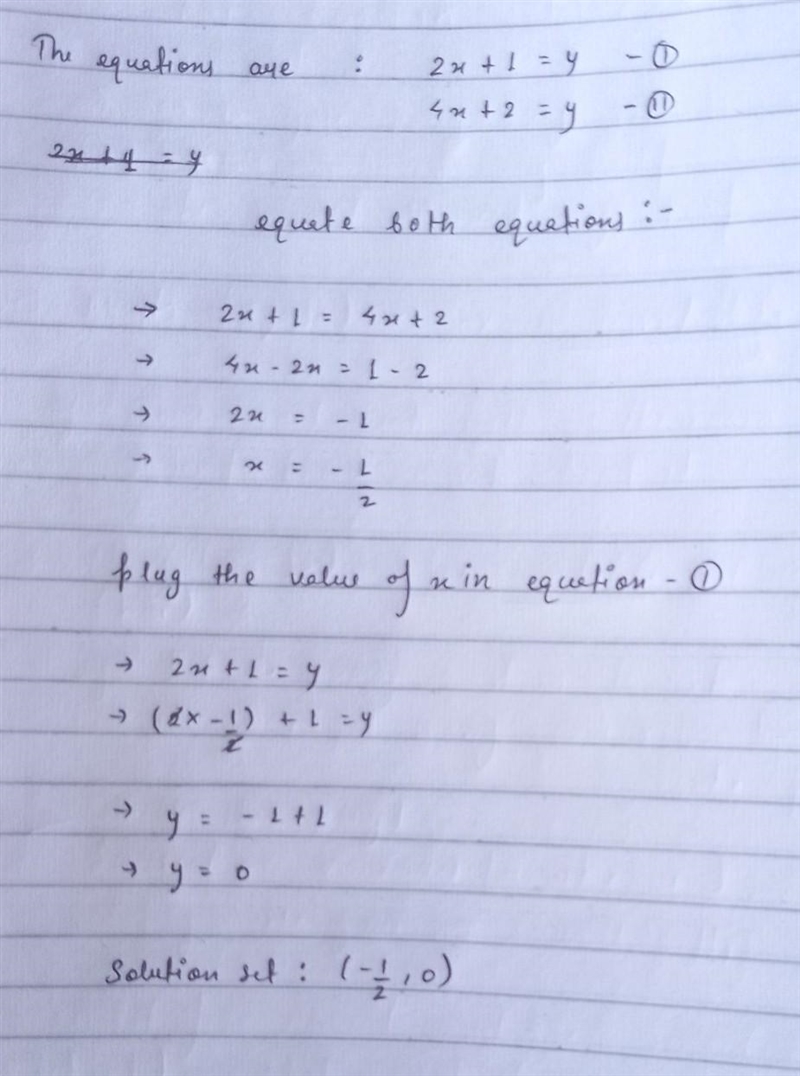 The equations are : 2x + 1 = y - ①
4x + 2 = y - ⑪
2x + 1 = y
equate both equations :-
→ 2x + 1 = 4x + 2
→ 4x - 2x = 1 - 2
→ 2x = - 1
→ x = - 1/2
plug the value of x in equation - ①
→ 2x + 1 = y
→ (2x - 1/2) + 1 = y
→ y = - 1 + 1
→ y = 0
Solution set : (- 1/2 , 0)